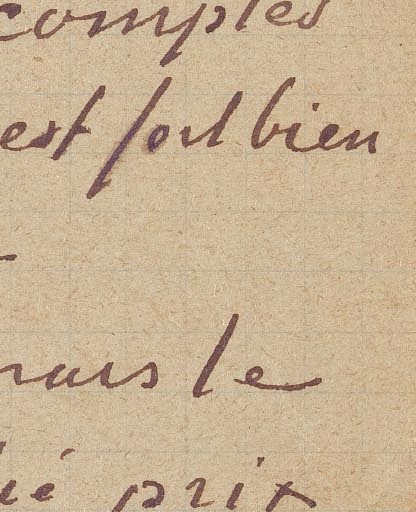 comptes
est fort bien
mais le
prix